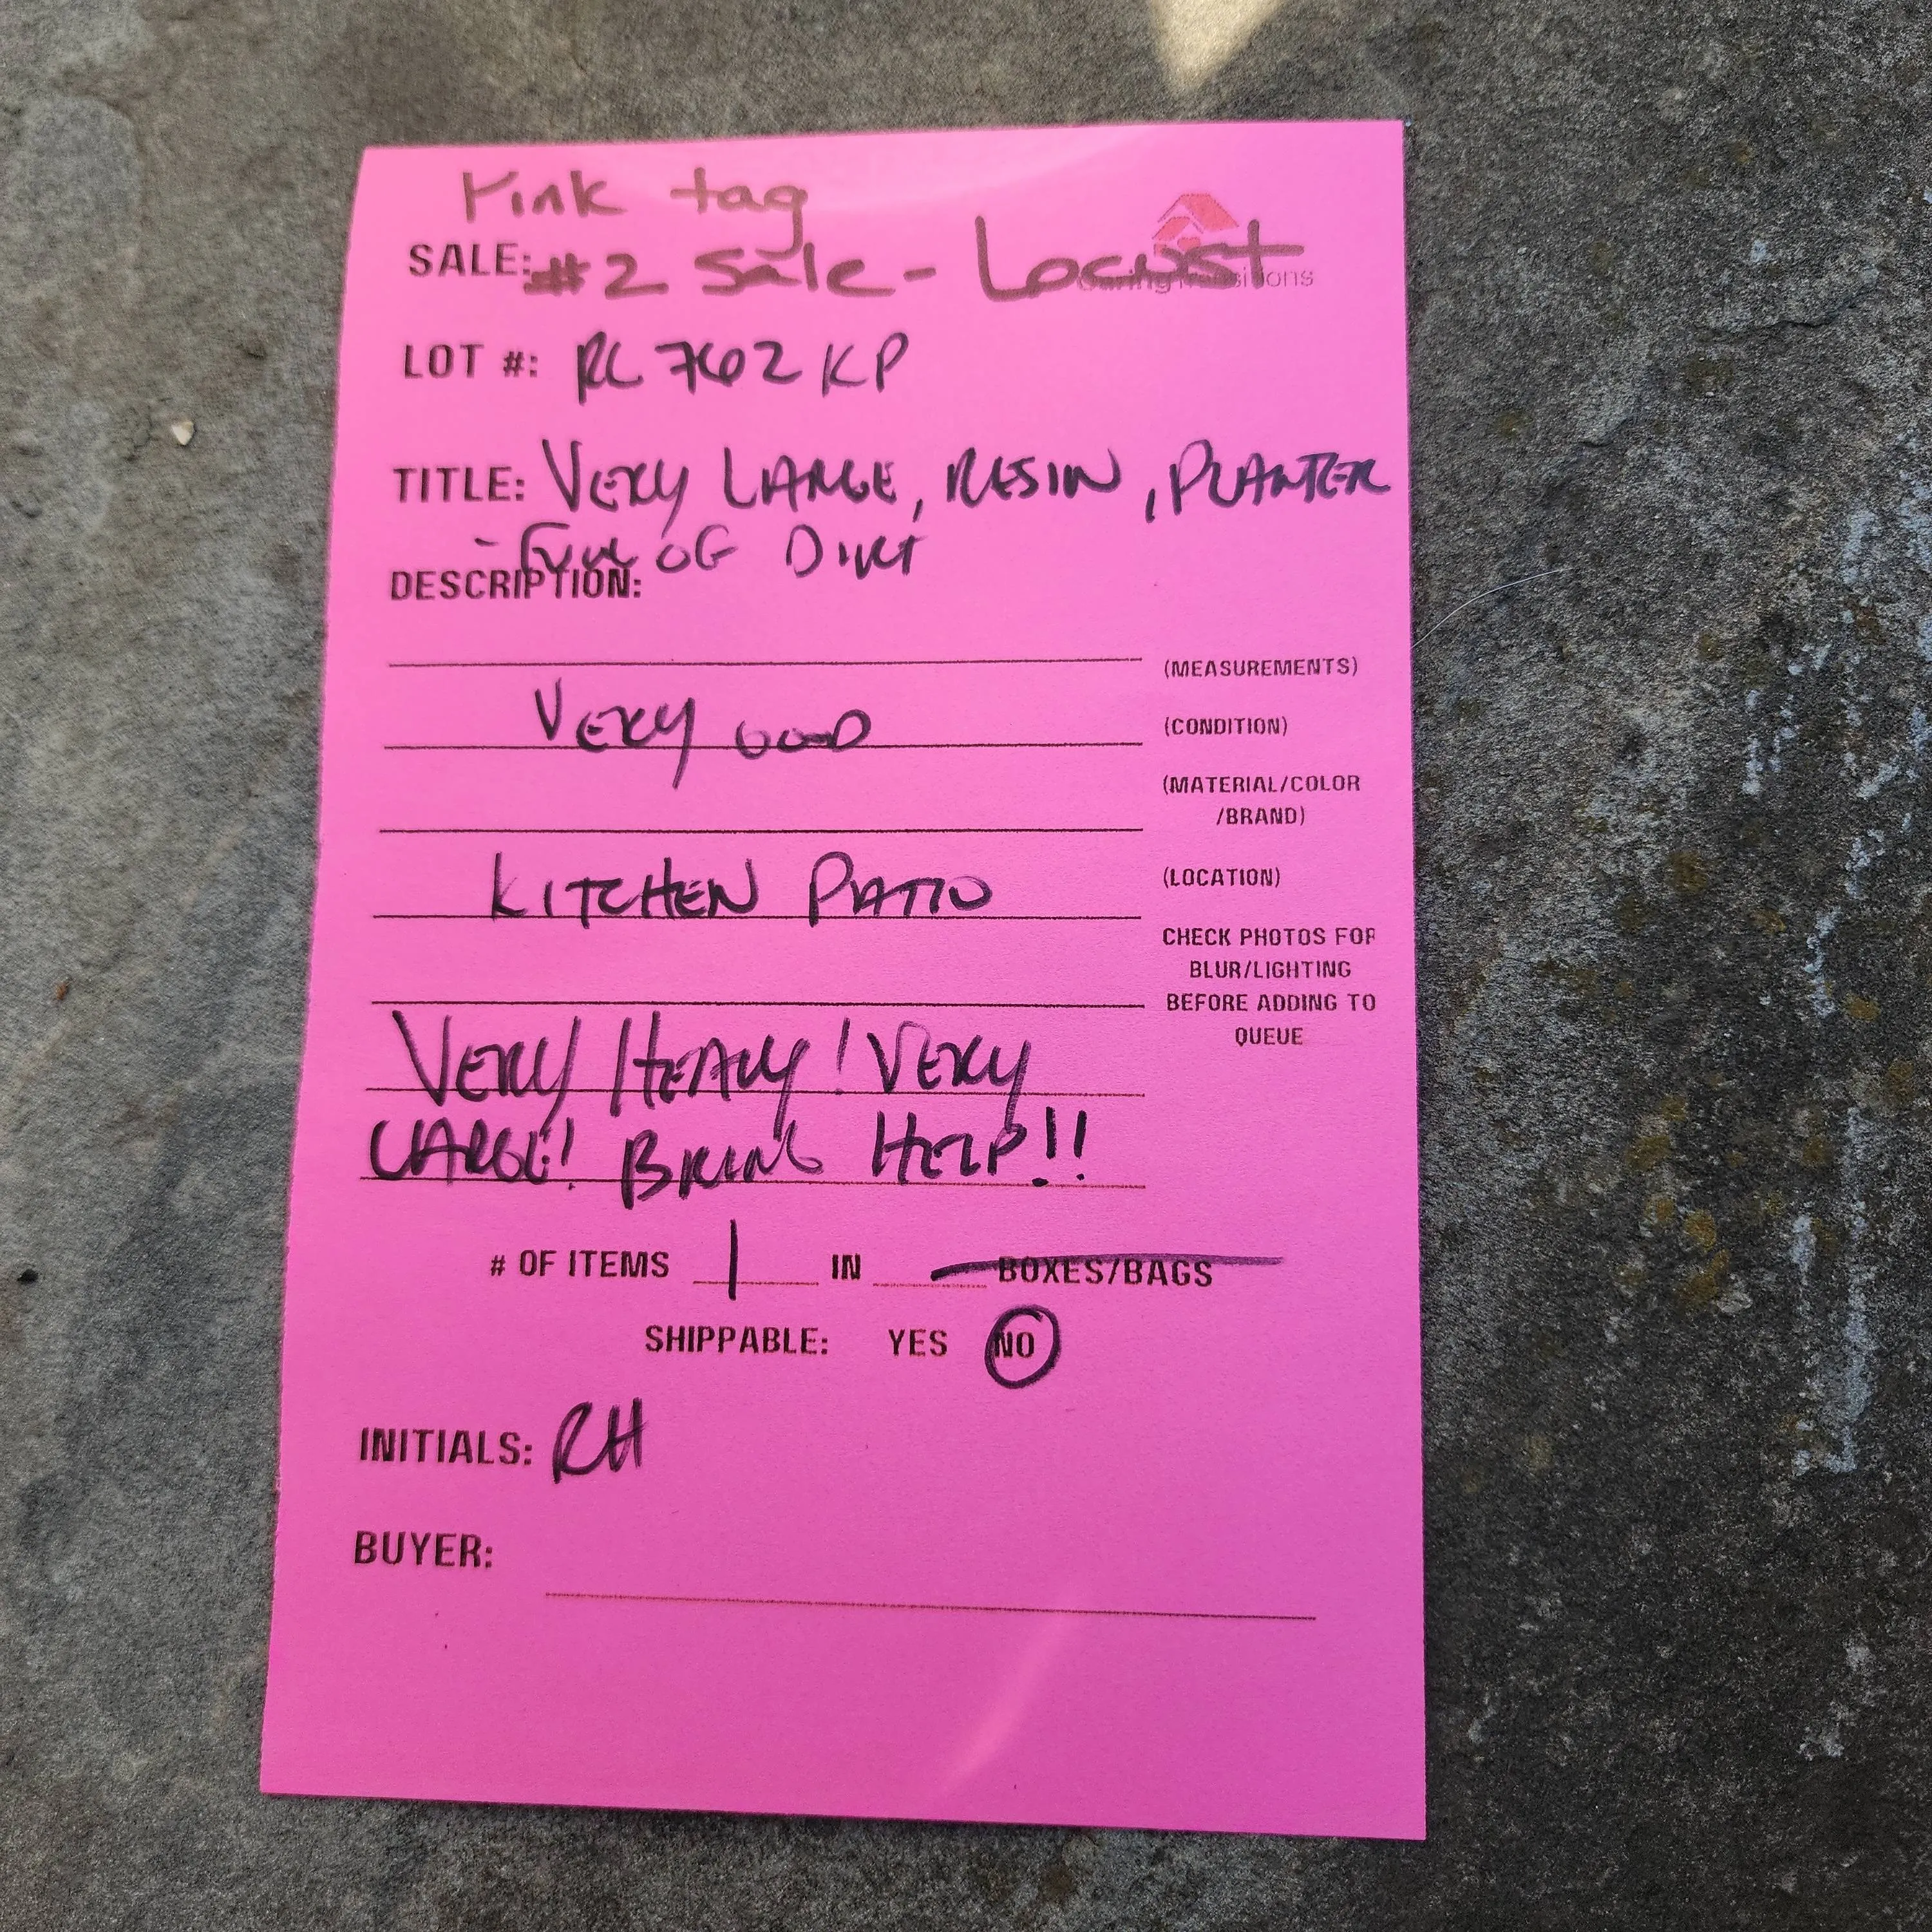 Pink tag
SALE: #2 Sale - Locust
LOT #: RL 762 KP
TITLE: VERY LARGE, RESIN, PLANTER
- FULL OF DIRT
DESCRIPTION:
(MEASUREMENTS)
VERY GOOD (CONDITION)
(MATERIAL/COLOR
/BRAND)
KITCHEN PATIO (LOCATION)
CHECK PHOTOS FOR
BLUR/LIGHTING
BEFORE ADDING TO
QUEUE
VERY HEAVY! VERY
LARGE! BRING HELP!!
# OF ITEMS 1 IN BOXES/BAGS
SHIPPABLE: YES NO
INITIALS: RH
BUYER: